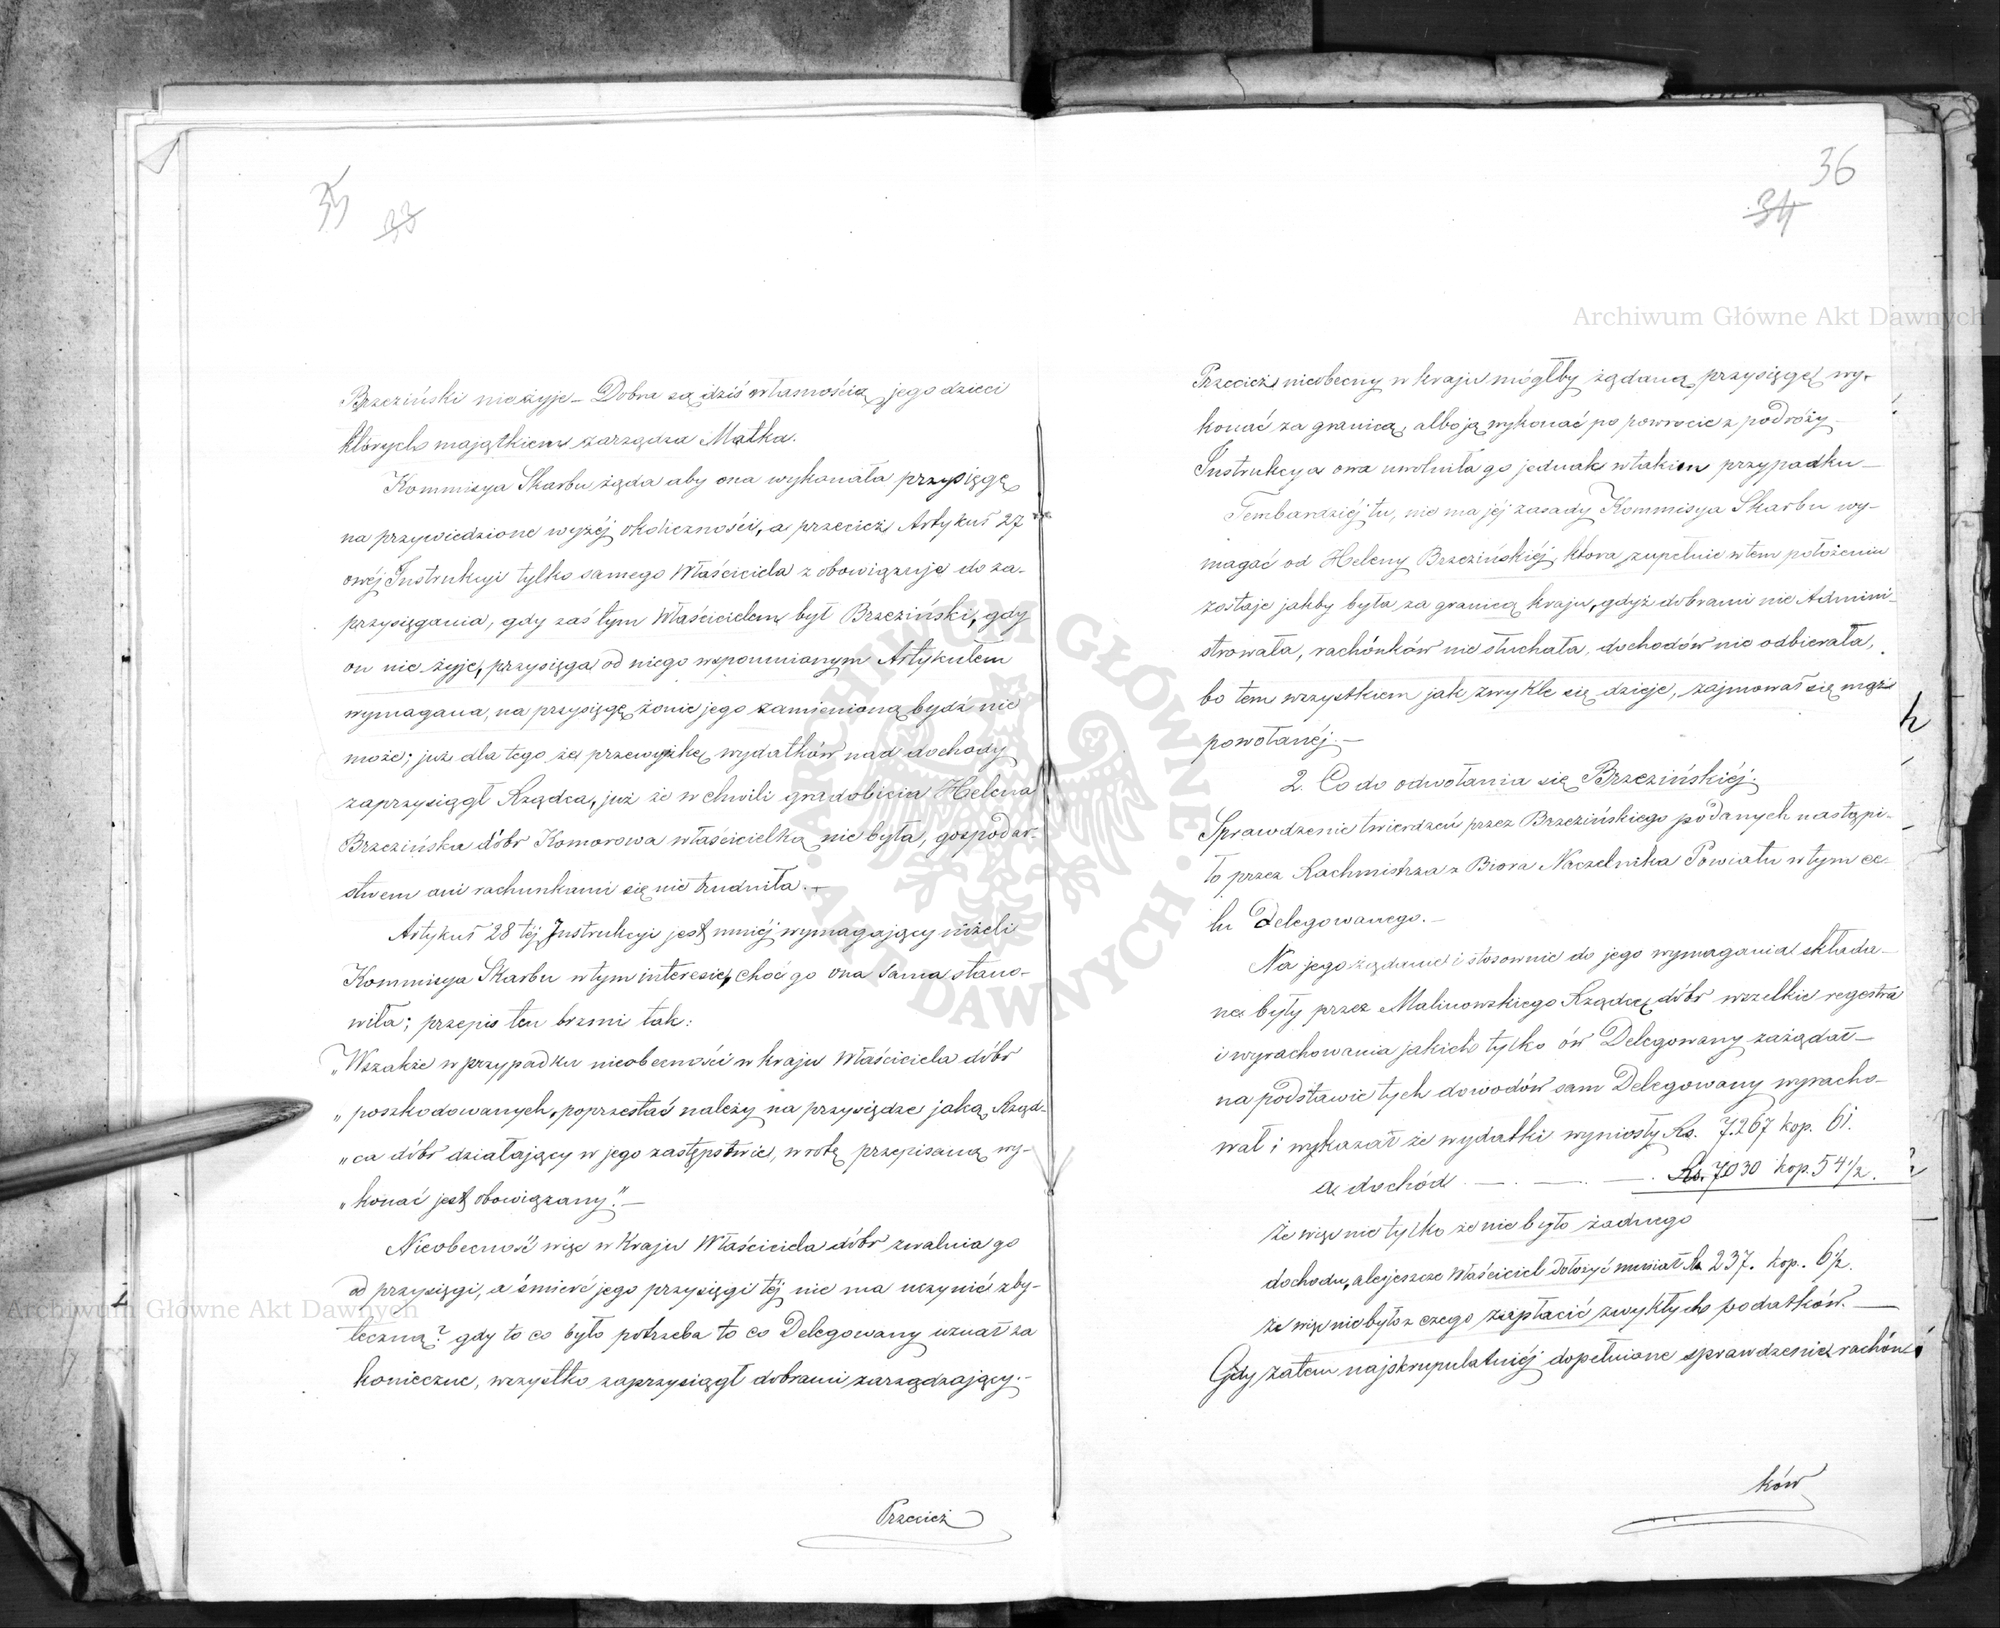 35 33
Brzeziński nieżyje – Dobra są dziś własnością jego dzieci
których majątkiem zarządza Matka.
Kommisya Skarbu żąda aby ona wykonała przysięgę
na przywiedzione wyżej okoliczności, a przecież Artykuł 27
owéj Instrukcyi tylko samego Właściciela zobowiązuje do za-
przysięgania, gdy zaś tym Właścicielem był Brzeziński, gdy
on nie żyje, przysięga od niego wspomnianym Artykułem
wymagana, na przysięgę żonie jego zamienioną bydź nie
może; już dla tego że przewyżkę wydatków nad dochody
zaprzysiągł Rządca, już że w chwili gradobicia Helena
Brzezińska dóbr Komorowa właścicielką nie była, gospodar-
stwem ani rachunkami się nie trudniła. –
Artykuł 28 téj Instrukcyi jest mniéj wymagający niżeli
Kommisya Skarbu w tym interesie, choć go ona sama stano-
wiła; przepis ten brzmi tak:
„Wszakże w przypadku nieobecności w kraju Właściciela dóbr
„poszkodowanych, poprzestać należy na przysiędze jaką Rząd-
„ca dóbr działający w jego zastępstwie, w rotę przepisaną wy-
„konać jest obowiązany.” –
Nieobecność więc w Kraju Właściciela dóbr zwalnia go
od przysięgi, a śmierć jego przysięgi téj nie ma uczynić zby-
teczną? gdy to co było potrzeba to co Delegowany uznał za
konieczne, wszystko zaprzysiągł dobrami zarządzający. –
Przecież
36
34
Przecież nieobecny w kraju mógłby żądaną przysięgę wy-
konać za granicą, albo ją wykonać po powrocie z podróży –
Instrukcya owa uwolniła go jednak w takim przypadku –
Tembardziéj tu, nie ma jéj zasady Kommisya Skarbu wy-
magać od Heleny Brzezińskiéj, ktora zupełnie w tem położeniu
zostaje jakby była za granicą kraju, gdyż dobrami nie Admini-
strowała, rachónków nie słuchała, dochodów nie odbierała,
bo tem wszystkiem jak zwykle się dzieje, zajmował się mąż
powołanéj. –
2. Co do odwołania się Brzezińskiéj.
Sprawdzenie twierdzeń przez Brzezińskiego podanych nastąpi-
ło przez Rachmistrza z Biora Naczelnika Powiatu w tym ce-
lu Delegowanego. –
Na jego żądanie i stosownie do jego wymagania składa-
ne były przez Malinowskiego Rządcę dóbr wszelkie regestra
i wyrachowania jakich tylko ów Delegowany zażądał –
na podstawie tych dowodów sam Delegowany wyracho-
wał i wykazał że wydatki wyniosły Rs. 7.267 kop. 61.
a dochód – . – . – . Rs. 7030 kop. 54 1/2.
że więc nie tylko że nie było żadnego
dochodu, ale jeszcze Właściciel dołożyć musiał Rs 237. kop. 6 1/2.
że więc nie było z czego zapłacić zwykłych podatków. –
Gdy zatem najskrupulatniéj dopełnione sprawdzenie rachón-
ków
Archiwum Główne Akt Dawnych
Archiwum Główne Akt Dawnych
ARCHIWUM GŁÓWNE · AKT DAWNYCH ·